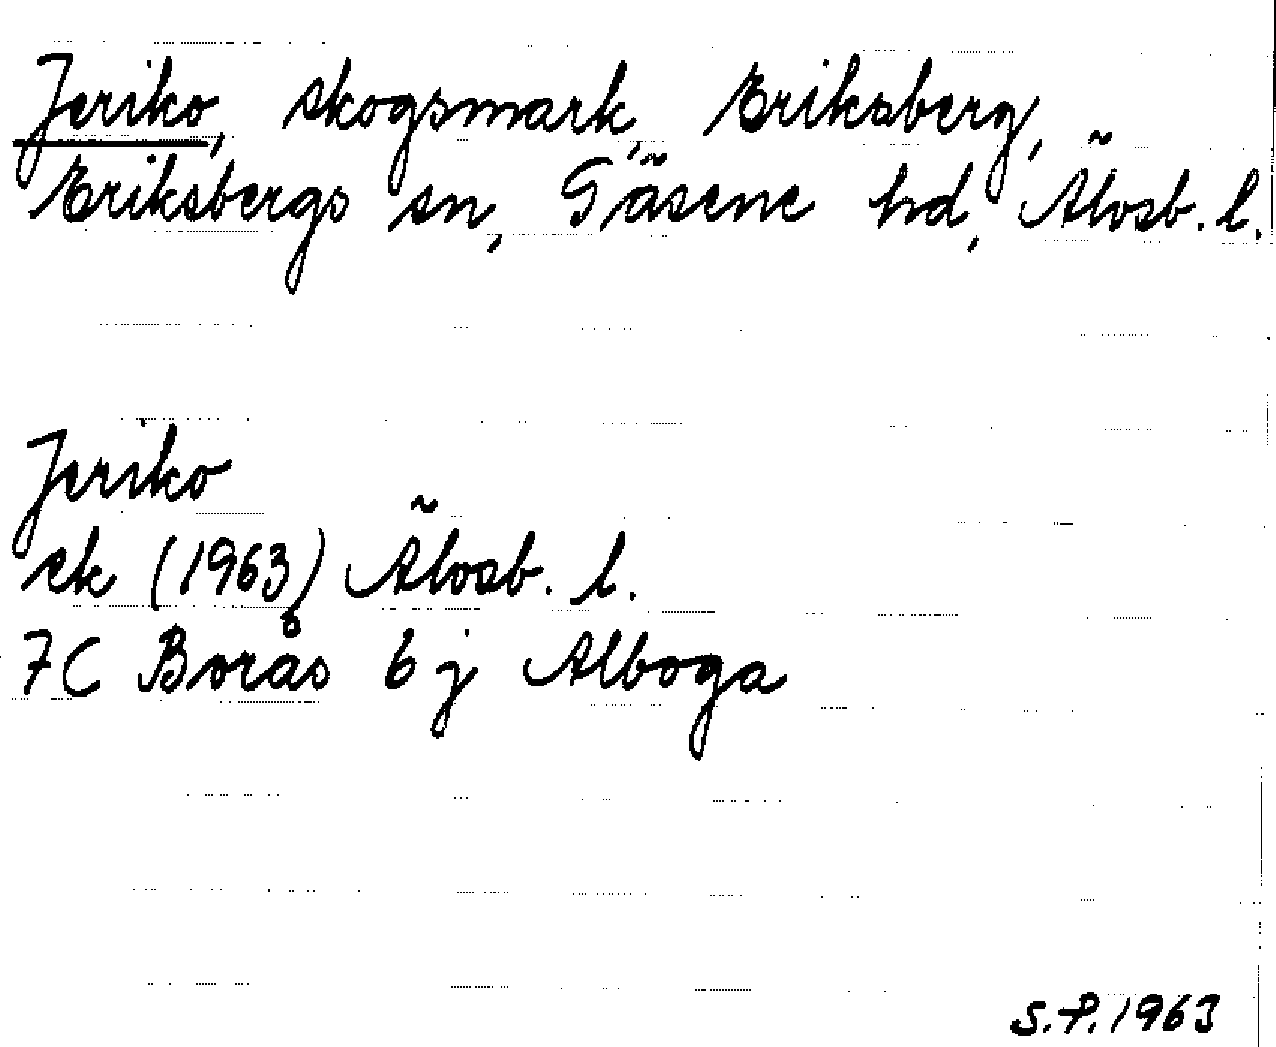 Jeriko, skogsmark, Eriksberg,
Eriksbergs sn, Gäsene hd, Älvsb. l.
Jeriko
ek (1963) Älvsb. l.
7C Borås 6j Alboga
S.P. 1963